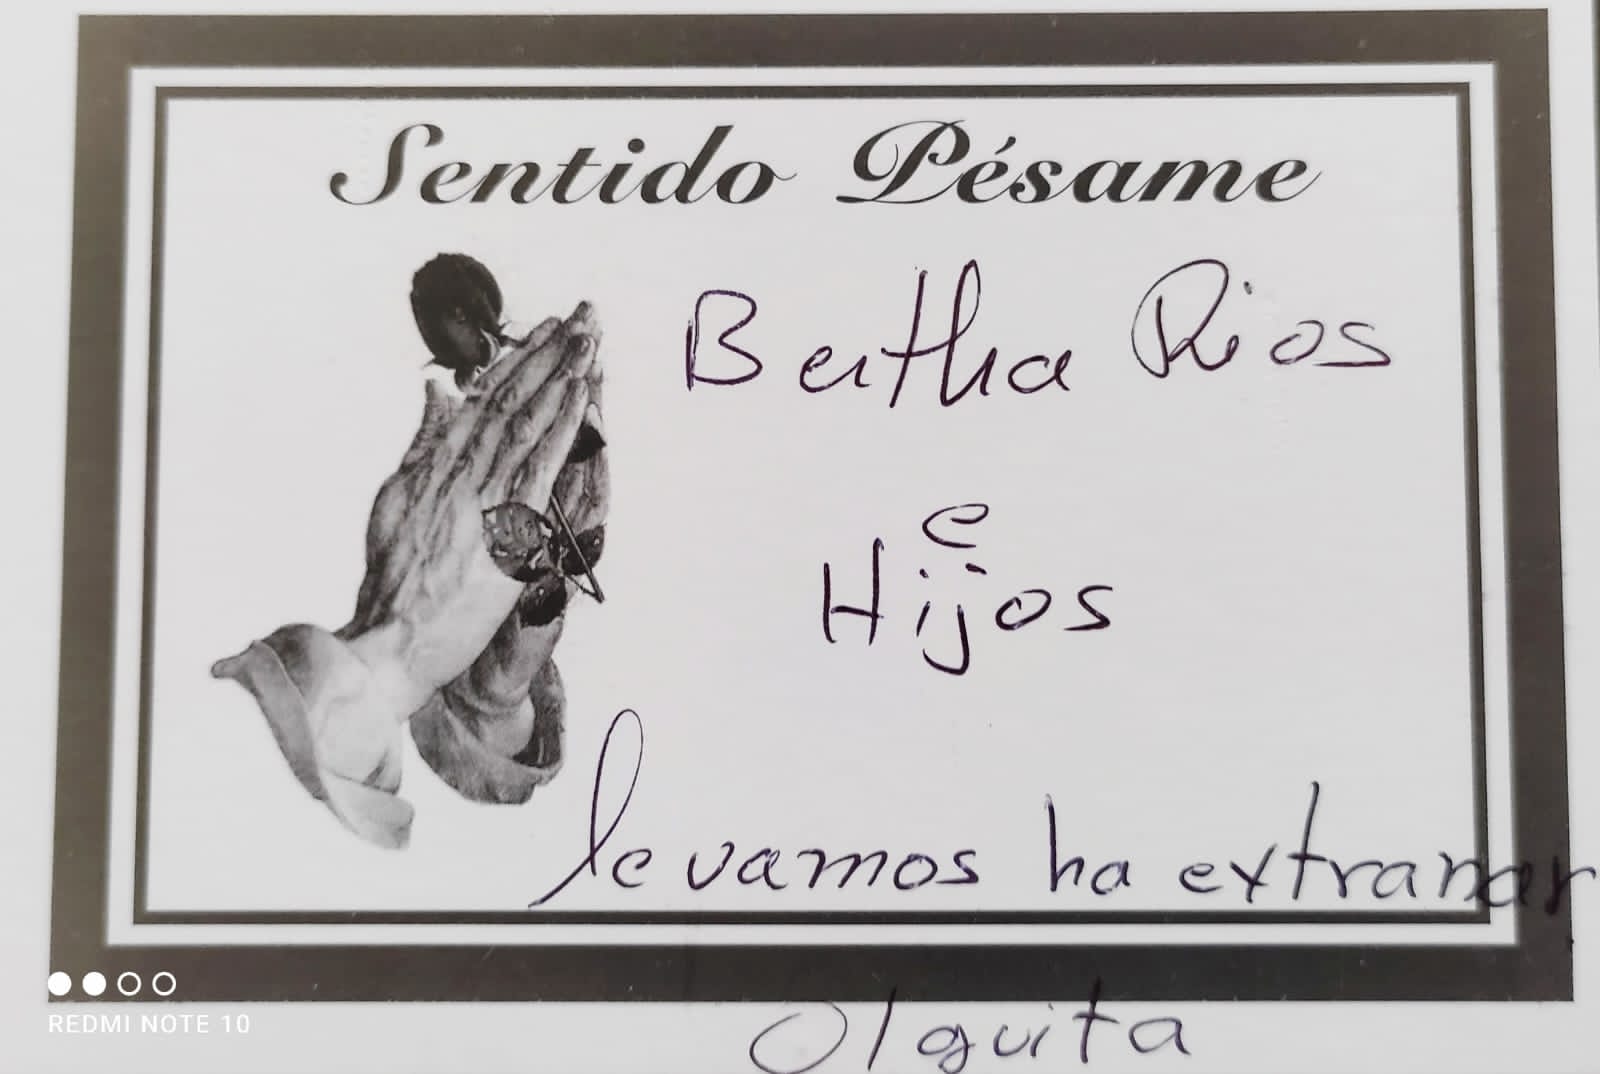 Sentido Pésame
Bertha Rios
e
Hijos
le vamos ha extranar
Olguita
REDMI NOTE 10